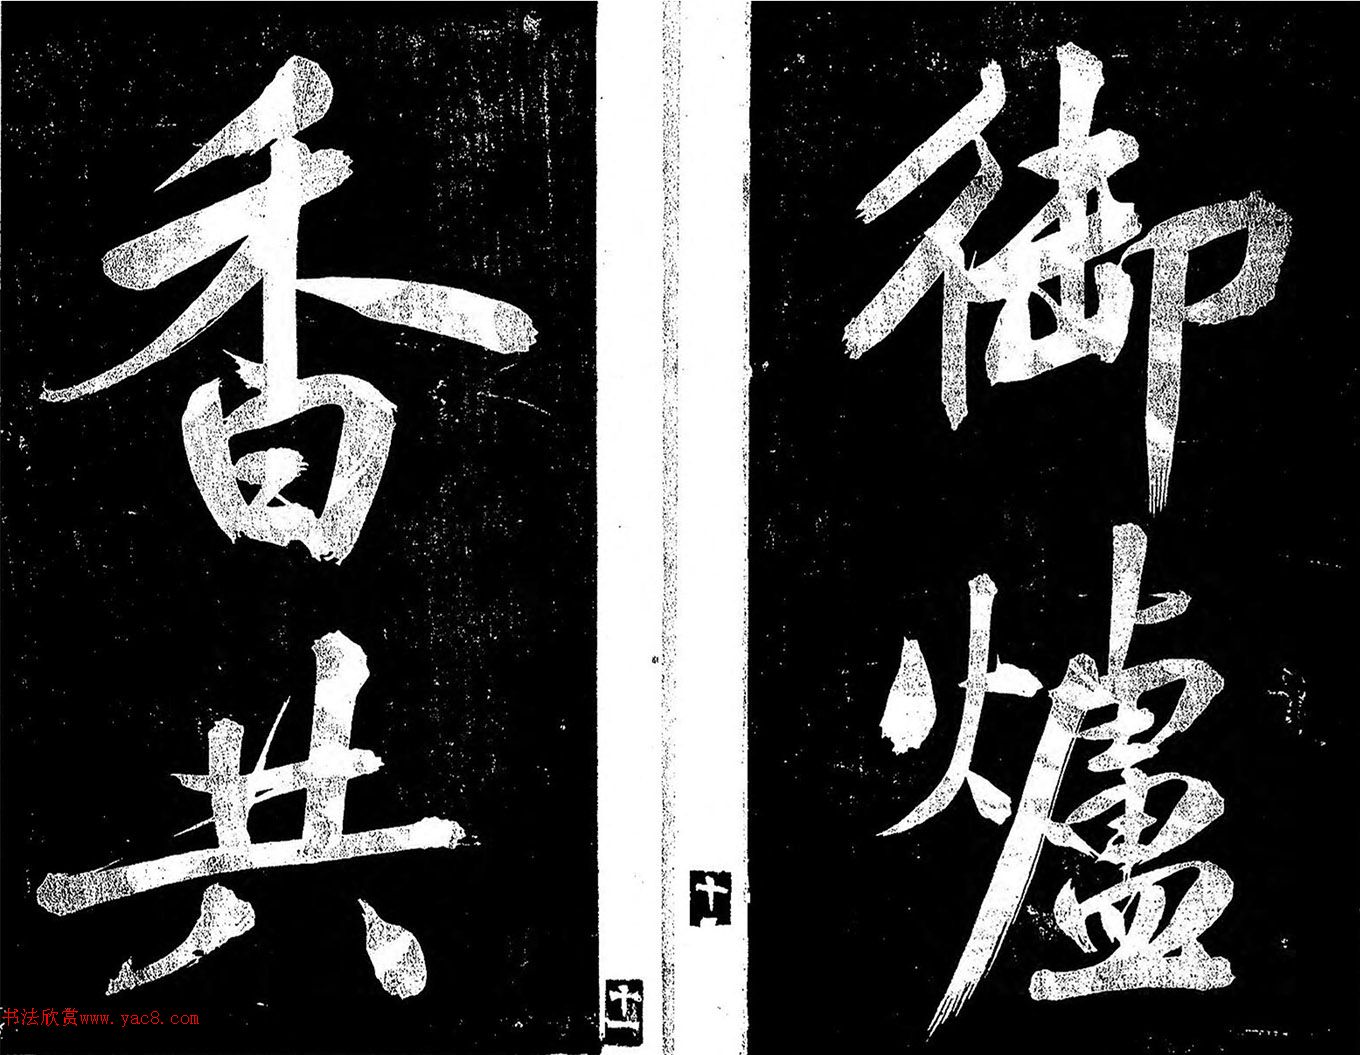 御爐
香共
十
十一
书法欣赏www.yac8.com